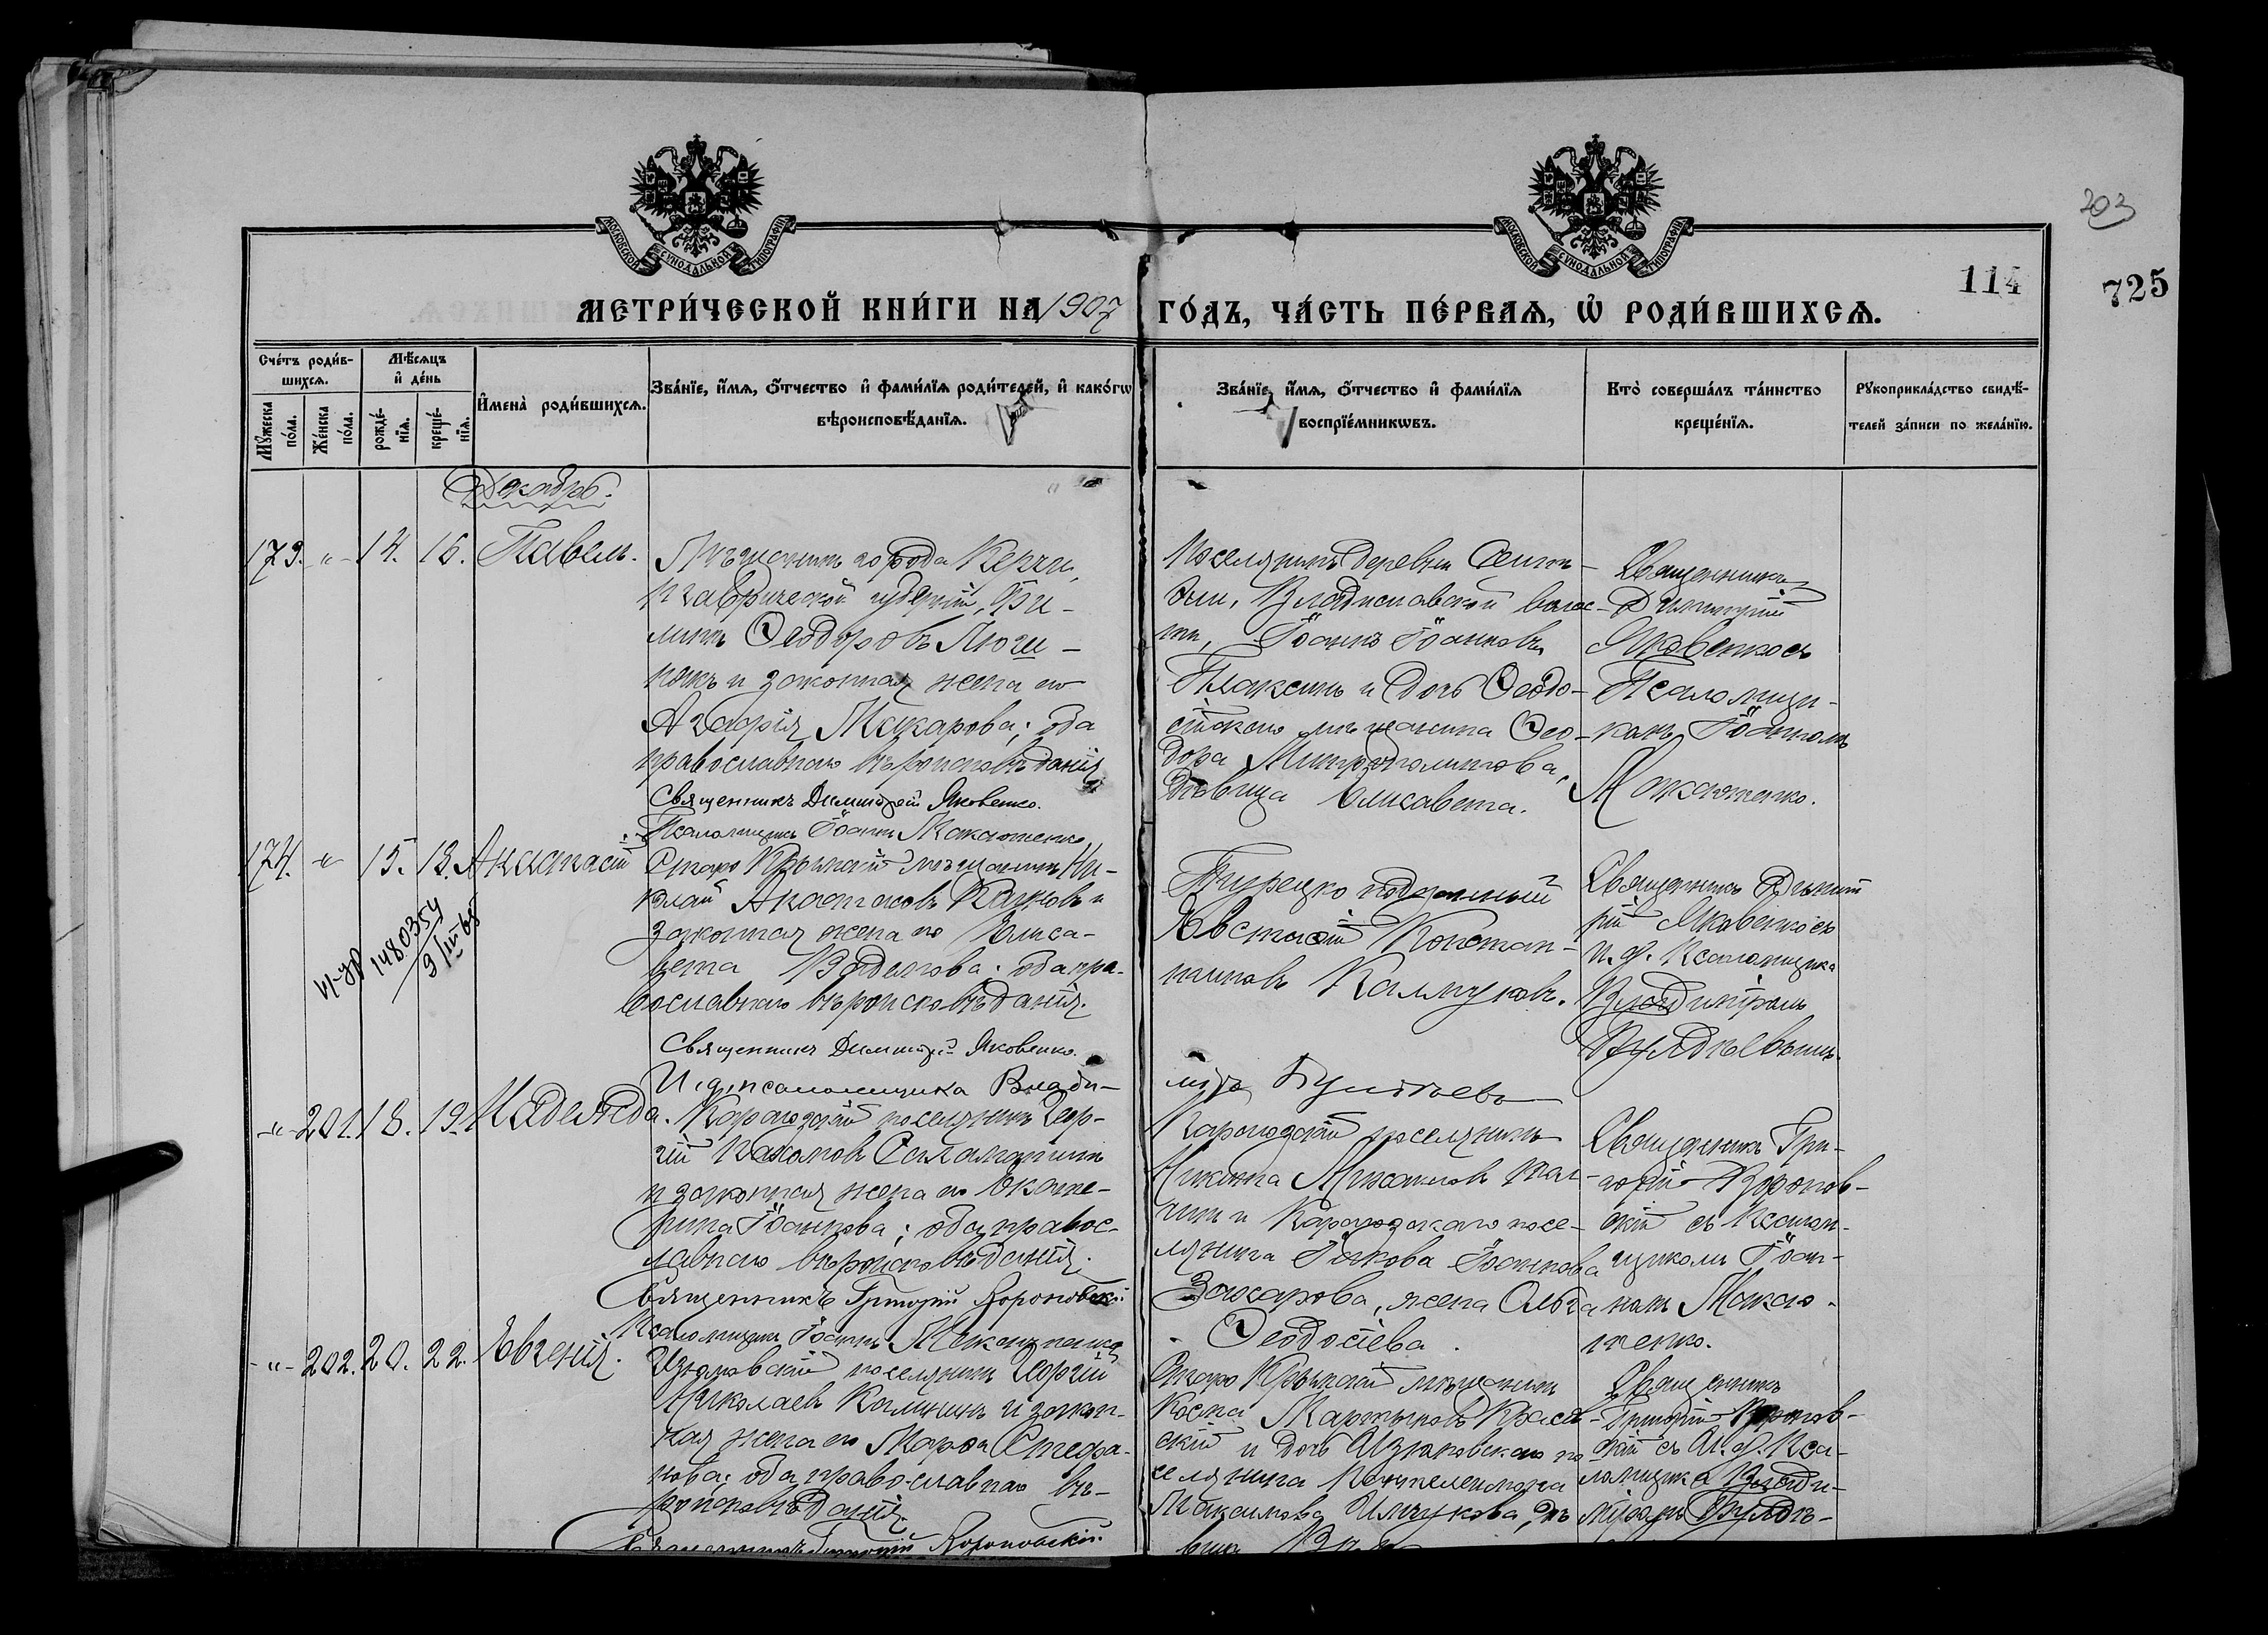 203
114
725
МОСКОВСКОЙ СѴНОДАЛЬНОЙ ТИПОГРАФІИ
МОСКОВСКОЙ СѴНОДАЛЬНОЙ ТИПОГРАФІИ
МЕТРИ́ЧЕСКОЙ КНИ́ГИ НА 1907 ГО́ДЪ, ЧА́СТЬ ПЕ́РВАѦ, Ѡ҆ РОДИ́ВШИХСѦ.
Сче́тъ роди́в-
шихсѧ.
Мꙋ́жеска
по́ла.
Же́нска
по́ла.
Мѣ́сѧцъ
и҆ де́нь
рожде́-
нїѧ.
креще́-
нїѧ.
И҆мена̀ роди́вшихсѧ.
Зва́нїе, и҆́мѧ, ѻ҆́тчество и҆ фами́лїѧ роди́телей, и҆ како́гѡ
вѣроисповѣ́данїѧ.
Зва́нїе, и҆́мѧ, ѻ҆́тчество и҆ фами́лїѧ
воспрїе́мникѡвъ.
Кто̀ соверша́лъ та́инство
креще́нїѧ.
Рꙋкоприкла́дство свидѣ́-
телей за́писи по жела́нїю.
Декабрь.
173. -"- 14. 16. Павелъ.
Мѣщанинъ города Керчи,
Таврической губерніи, Фи-
липъ Ѳеодоровъ
и законная жена его
Агафія Макарова; оба
православнаго вѣроисповѣданія
Священникъ Димитрій Яковенко.
Псаломщикъ Іоаннъ Макаютенко
Поселянинъ деревни
Владиславской волос-
ти, Іоаннъ Іоанновъ
Плаксинъ и дочь Ѳеодо-
сійскаго мѣщанина Ѳео-
дора Митрополитова,
дѣвица Елисавета.
Священникъ
Димитрій
Яковенко съ
Псаломщи-
комъ Іоанномъ
Макаютенко.
174. -"- 15. 18. Анастасій
Старо Крымскій мѣщанинъ Ни-
колай Анастасовъ и
законная жена его Елиса-
вета оба пра-
вославнаго вѣроисповѣданія.
Священникъ Димитрій Яковенко.
И. д. псаломщика Влади-
міръ
Турецко подданный
Евстафій Констан-
тиновъ
Священникъ Димит-
рій Яковенко съ
и. д. Псаломщика
Владиміромъ
II-УР
1480354
9/III 65
-"- 201. 18. 19. Надежда.
Карагозскій поселянинъ Геор-
гій
и законная жена его Екате-
рина Іоаннова; оба правос-
лавнаго вѣроисповѣданія.
Священникъ Григорій Вороновскій
Псаломщикъ Іоаннъ Макаютенко
Карагозскій поселянинъ
Никита
и Карагозскаго посе-
лянина Іакова Іоаннова
Захарова, жена Ольга
Ѳеодосіева.
Священникъ Гри-
горій Воронов-
скій съ Псалом-
щикомъ Іоан-
номъ Макаю-
тенко.
-"- 202. 20. 22. Евгенія.
Изюмовскій поселянинъ Георгій
Николаевъ Калининъ и закон-
ная жена его Марфа Стефа-
нова; оба православнаго вѣ-
роисповѣданія.
Священникъ Григорій Вороновскій.
Старо Крымскій мѣщанинъ
Косма
и дочь Изюмовскаго по-
селянина Пантелеимона
Максимова дѣ-
вица
Священникъ
Григорій Воронов-
скій съ И. д. Пса-
ломщика Влади-
міромъ